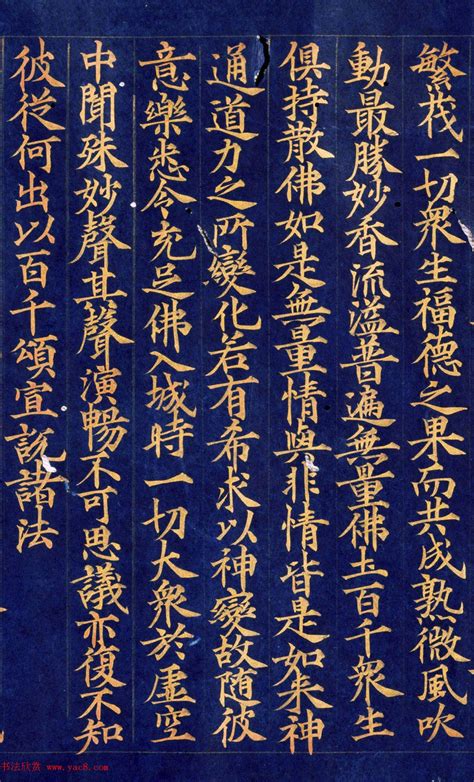 繁茂一切眾生福德之果而共成熟微風吹
動最勝妙香流溢普遍無量佛土百千眾生
俱持散佛如是無量情與非情皆是如来神
通道力之所變化若有希求以神變故随彼
意樂悉令充足佛入城時一切大眾於虛空
中聞殊妙聲其聲演暢不可思議亦復不知
彼從何出以百千頌宣說諸法
书法欣赏 www.yac8.com